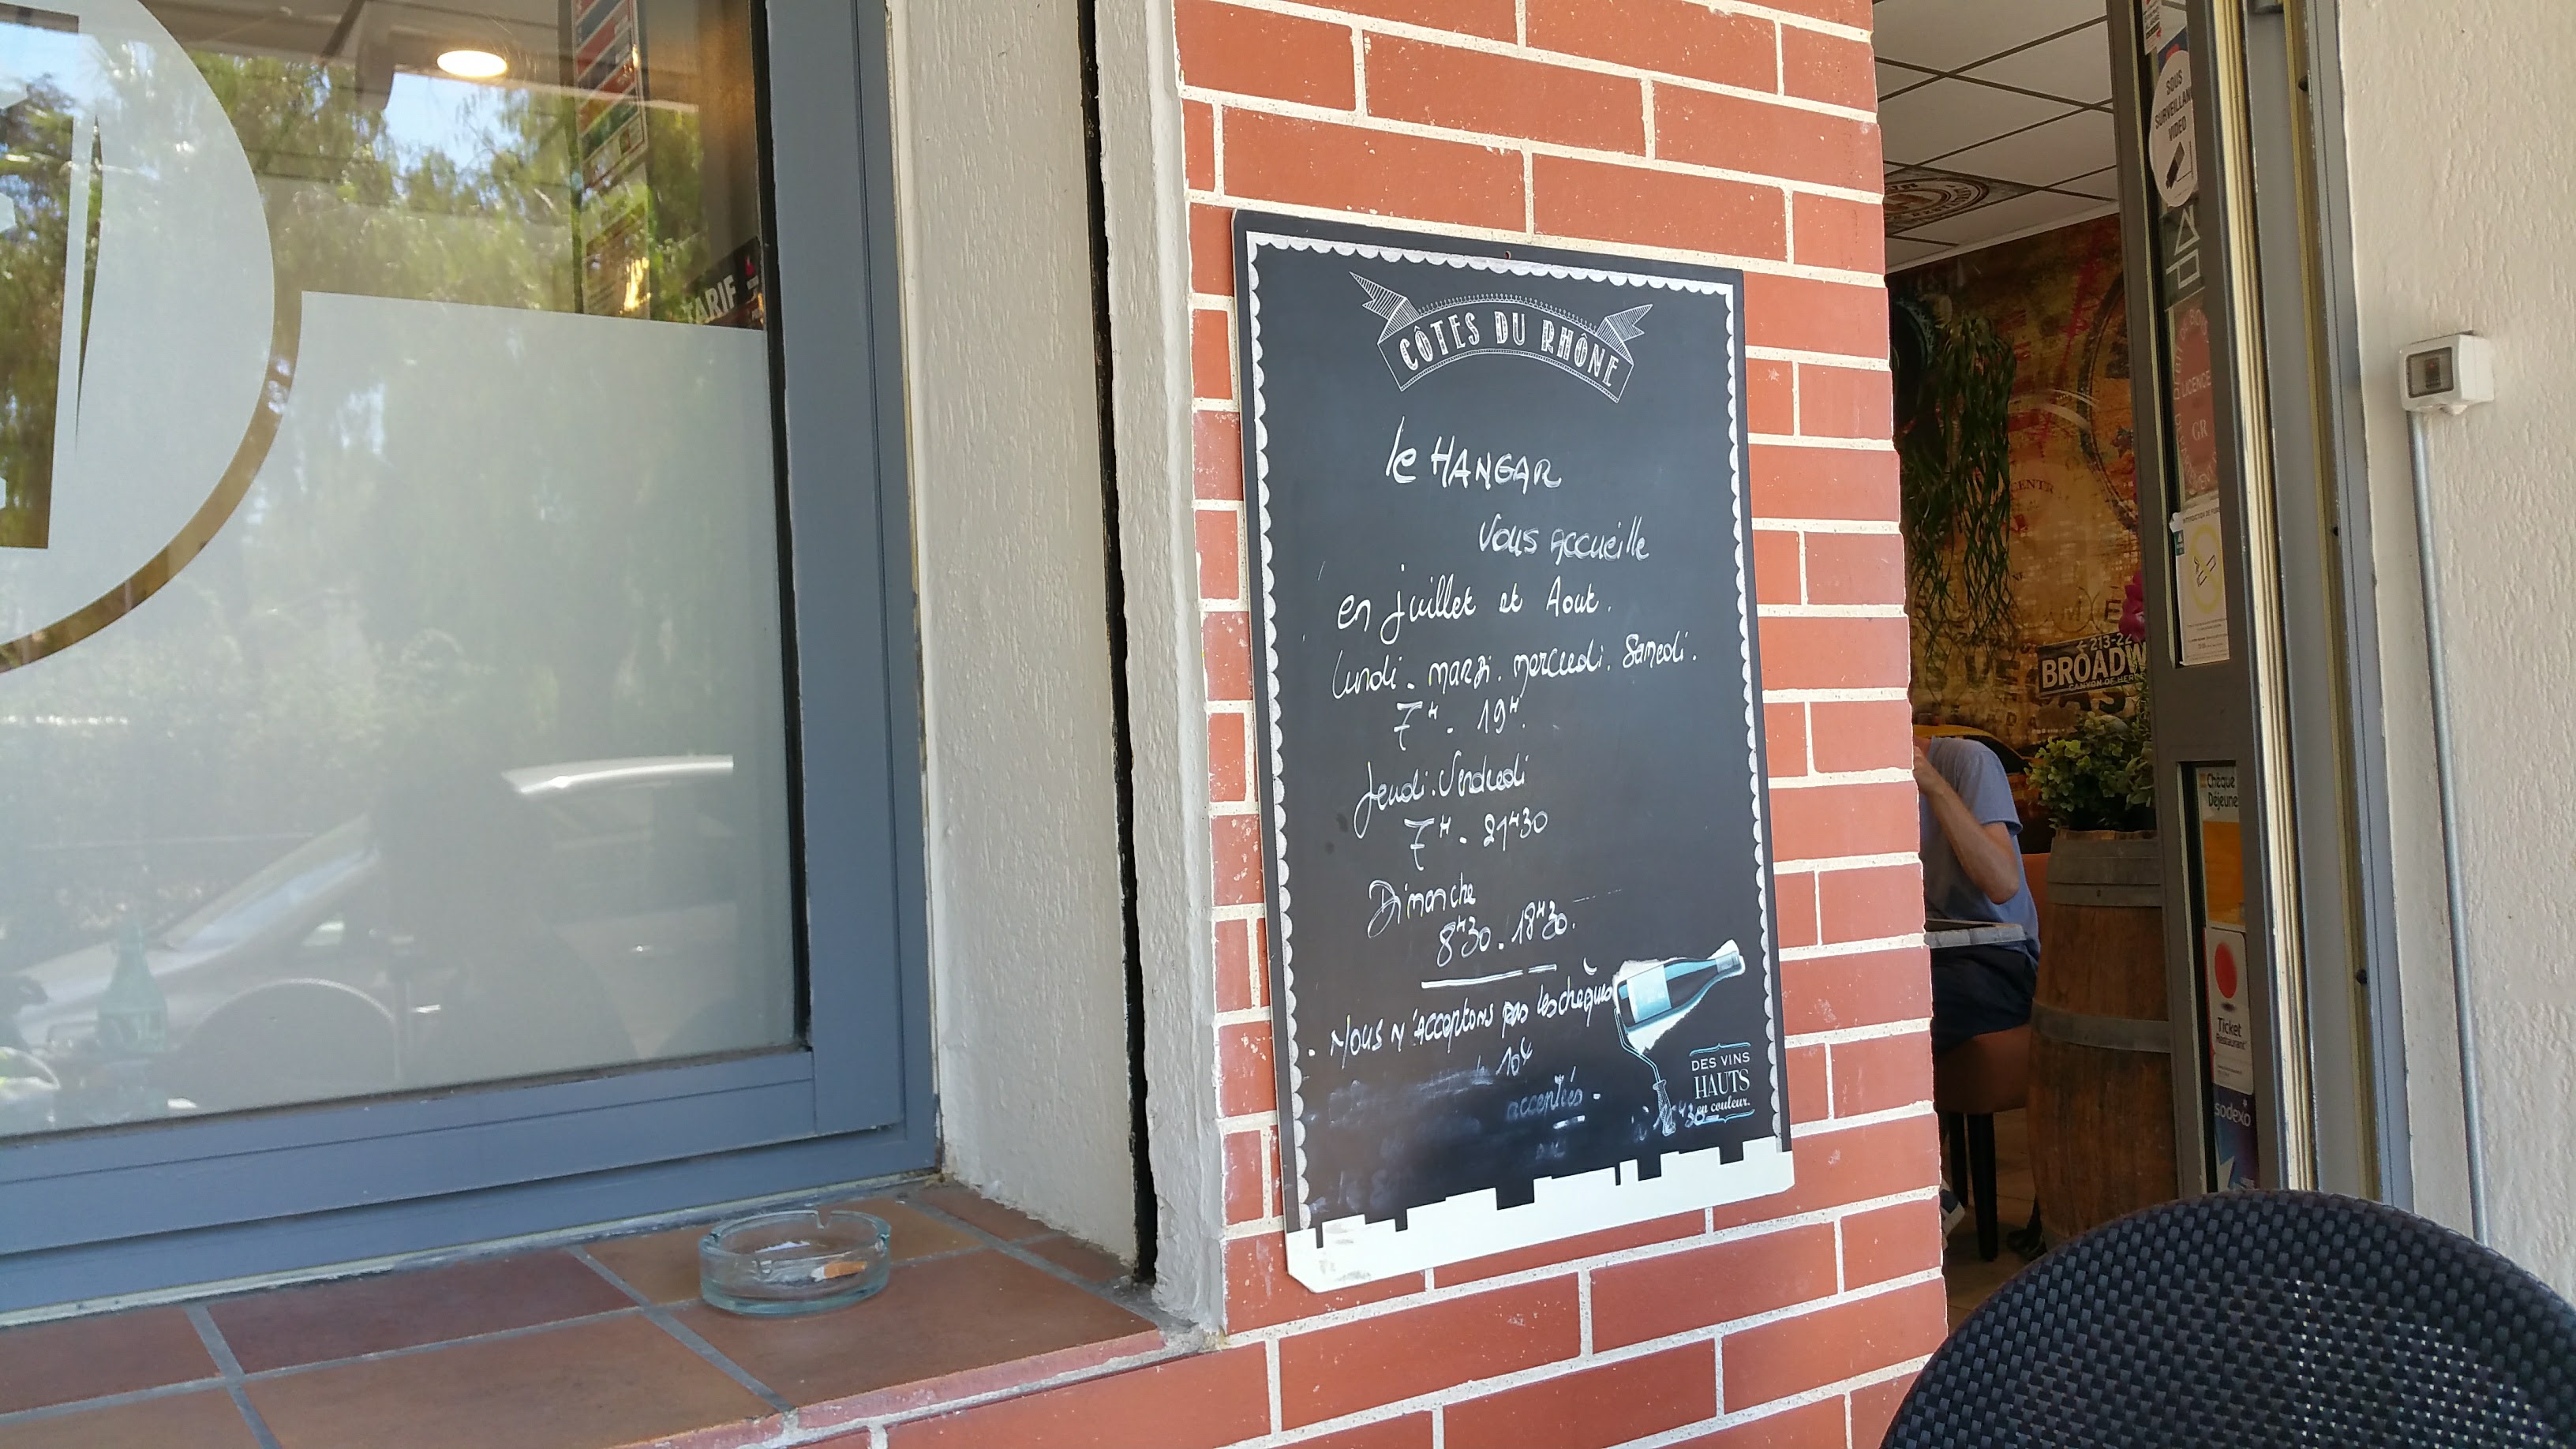 TARIF
CÔTES DU RHÔNE
le HANGAR
Vous accueille
en juillet et Aout.
lundi. mardi. mercredi. Samedi.
7H. 19H.
Jeudi. Vendredi
7H. 21H30
Dimanche
8H30. 18H30.
. Nous n'acceptons pas les chèques
10€
acceptés.
DES VINS
HAUTS
en couleur.
SOUS
SURVEILLAN
VIDEO
LICENCE
GR
213-22
BROADW
CANYON OF HER
Chèque
Déjeune
Ticket
Restaurant
sodexo